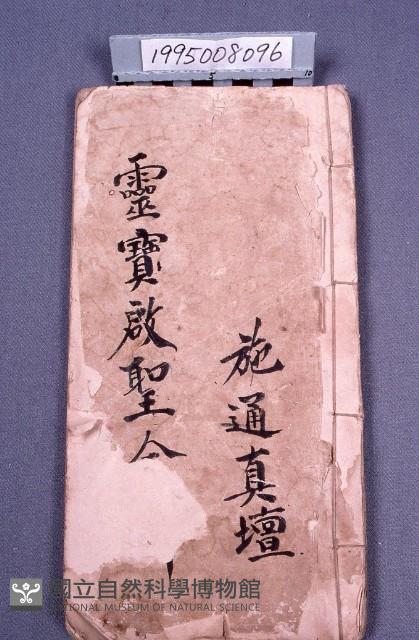 1995008096
0 5 10
施通真壇
靈寶啟聖
國立自然科學博物館
NATIONAL MUSEUM OF NATURAL SCIENCE